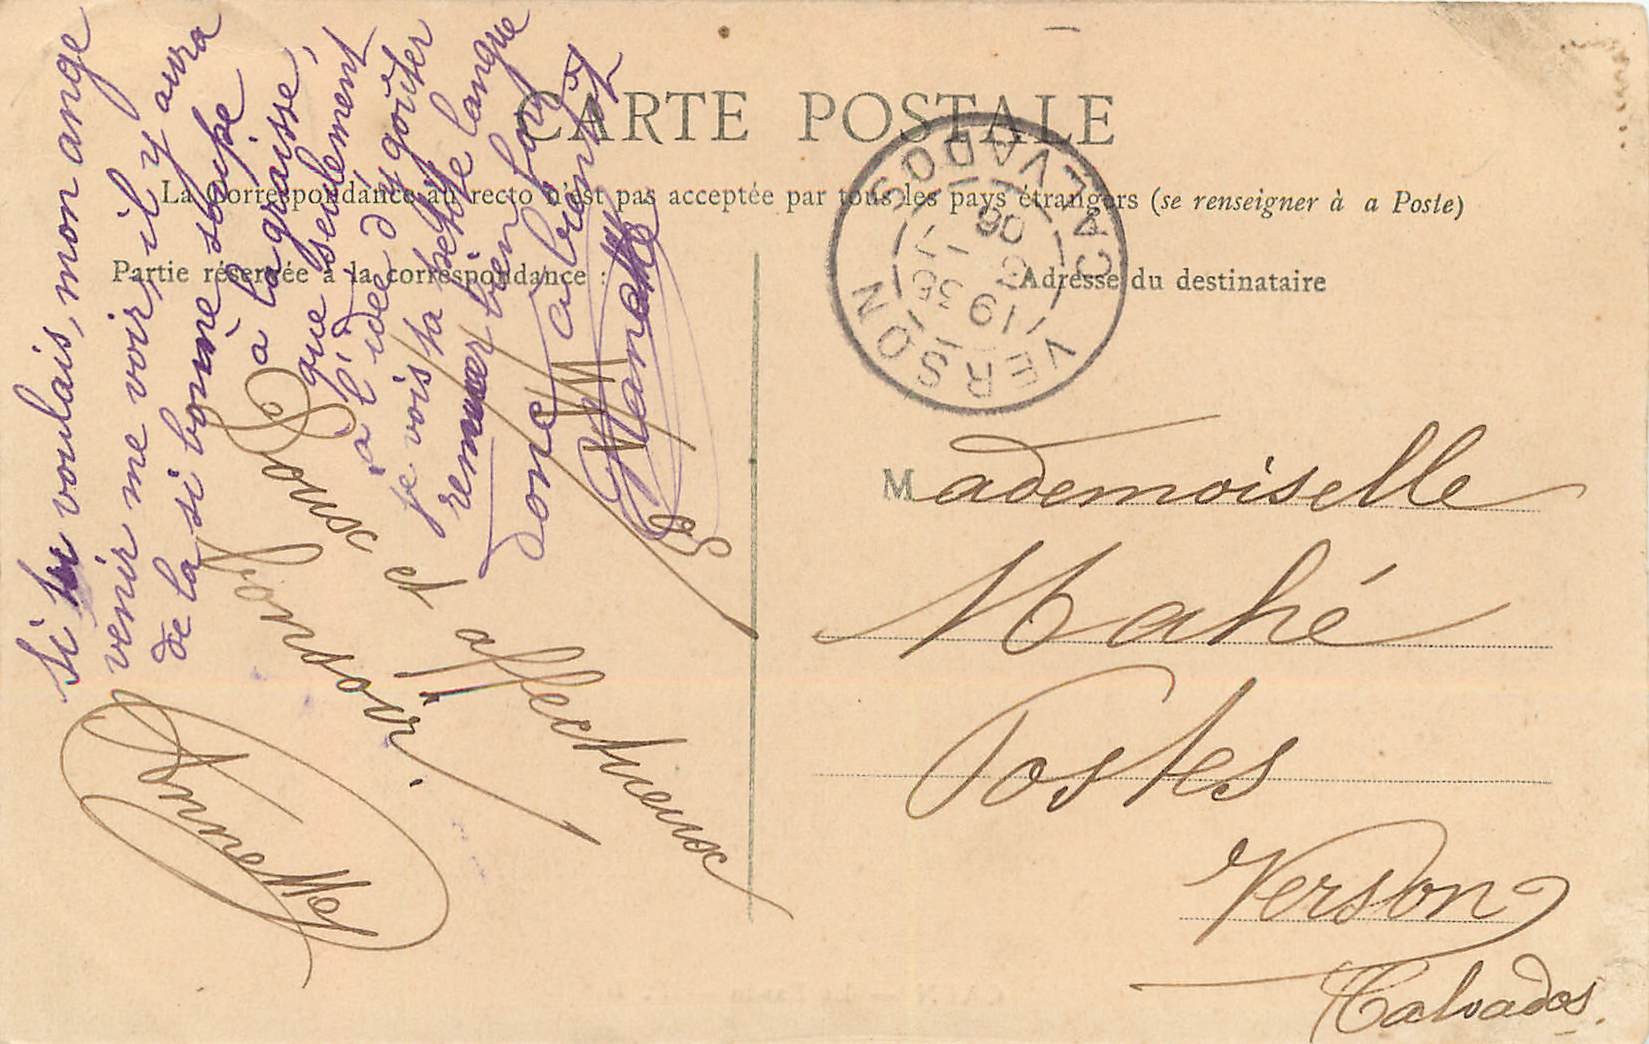 CARTE POSTALE
La Correspondance au recto n'est pas acceptée par tous les pays étrangers (se renseigner à a Poste)
Partie réservée à la correspondance :
Adresse du destinataire
VERSON
19 35
7 - 3
06
CALVADOS
Si tu voulais, mon ange
venir me voir, il y aura
de la si bonne soupe
à la graisse,
que seulement
à l'idée d'y goûter
je vois ta petite langue
remuer bien fort
donc à bientôt
Doux et affectueux
bonsoir.
Annette
Mademoiselle
Mahé
Postes
Verson
Calvados.